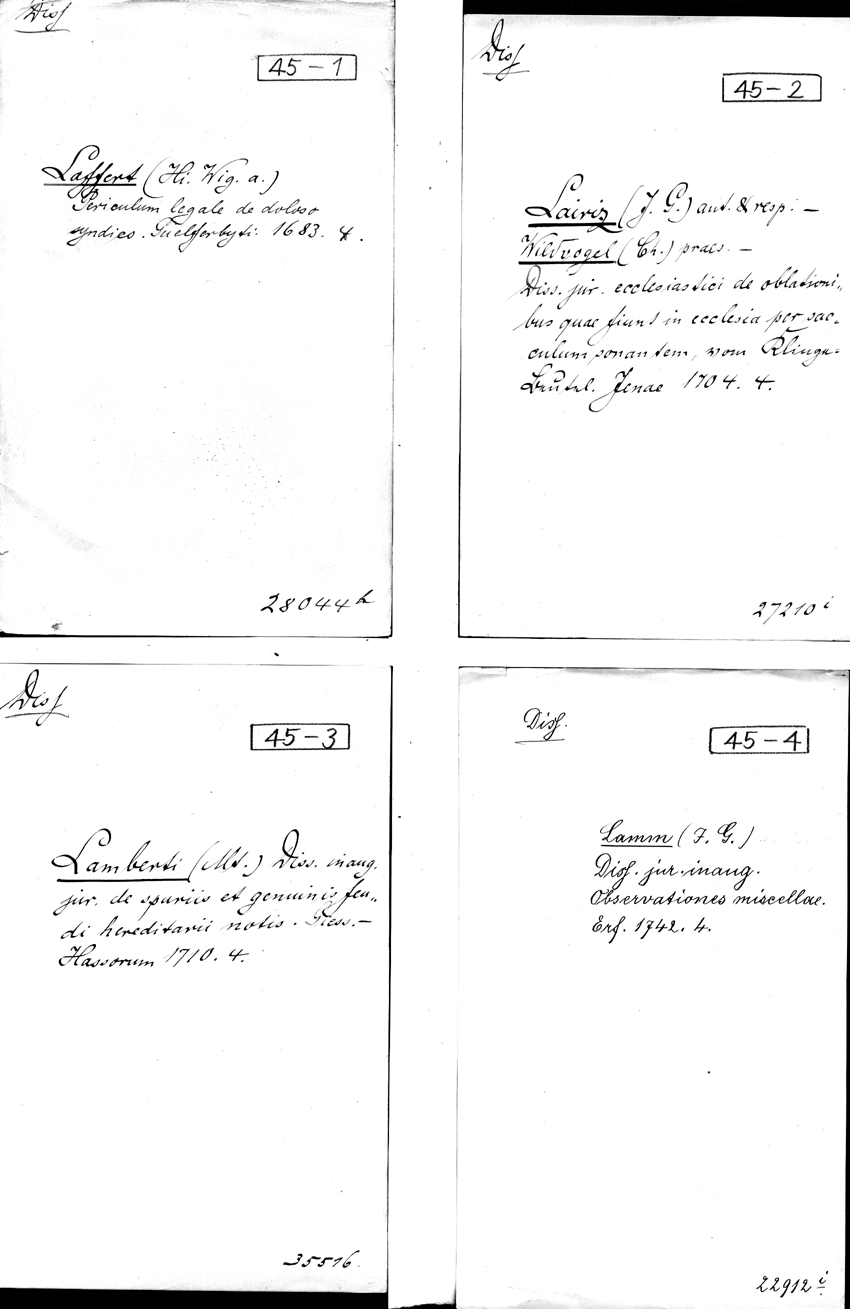 Diss
45-1
Laffert (Hi. Wig. a.)
Periculum legale de doloso
syndico. Guelferbyti. 1683. 4.
28044h
Diss
45-2
Lairiz (J. G.) aut. & resp. –
Wildvogel (Ch.) praes. –
Diss. jur. ecclesiastici de oblationi„
bus quae fiunt in ecclesia per sac„
culum sonantem, vom Klinge=
Beutel. Jenae 1704. 4.
27210i
Diss
45-3
Lamberti (Mt.) Diss. inaug.
jur. de spuriis et genuinis feu„
di hereditarii notis. Giess.–
Hassorum 1710. 4.
35516.
Diss.
45-4
Lamm (J. G.)
Diss. jur. inaug.
Observationes miscellae.
Erf. 1742. 4.
22912i